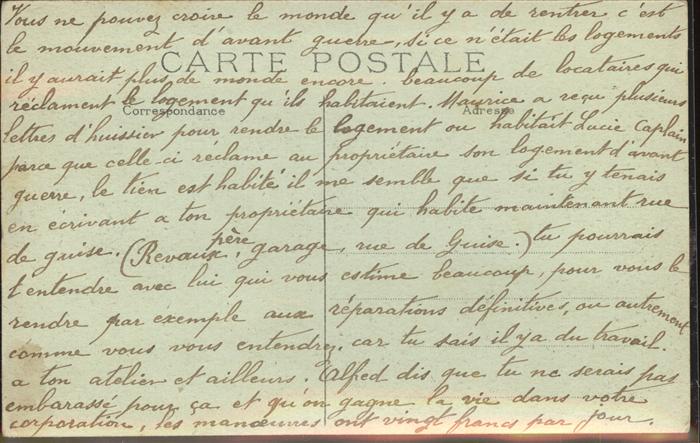 Vous ne pouvez croire le monde qu'il y a de rentrer c'est
le mouvement d'avant guerre, si ce n'était les logements
CARTE POSTALE
il y aurait plus de monde encore. beaucoup de locataires qui
réclament le logement qu'ils habitaient. Maurice a reçu plusieurs
Correspondance
Adresse
lettres d'huissier pour rendre le logement ou habitait Lucie Caplain
parce que celle-ci réclame au propriétaire son logement d'avant
guerre, le tien est habité il me semble que si tu y tenais
en écrivant a ton propriétaire qui habite maintenant rue
de guise. (Revaux père, garage, rue de Guise.) tu pourrais
t'entendre avec lui qui vous estime beaucoup, pour vous le
rendre par exemple aux réparations définitives, ou autrement
comme vous vous entendrez, car tu sais il y a du travail.
a ton atelier et ailleurs. Alfred dis que tu ne serais pas
embarassé pour ça et qu'on gagne la vie dans votre
corporation, les manœuvres ont vingt francs par jour.